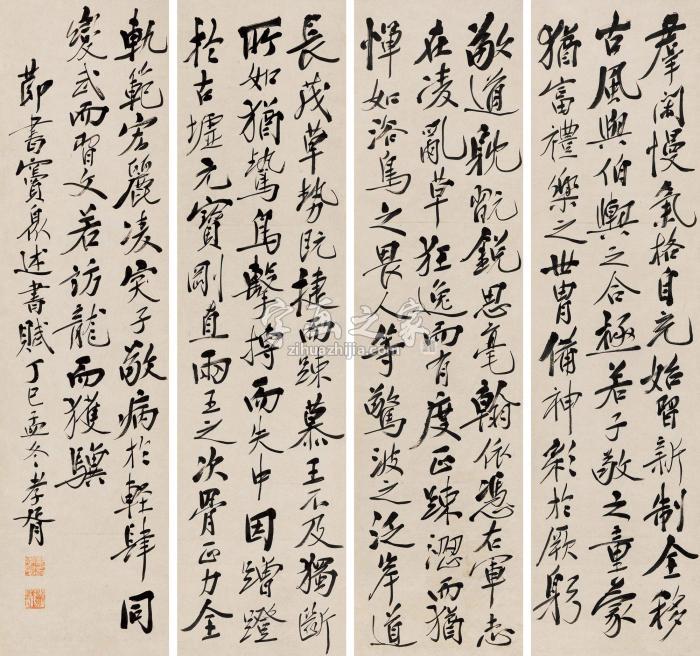 羣闊慢氣格自充始習新制全移
古風與伯輿之合極若子敬之童蒙
猶富禮樂之世胄備神彩於厥躬
敬道耽翫銳思毫翰依憑右軍志
在凌亂草狂逸而有度正踈澀而猶
憚如浴鳥之畏人等驚波之泛岸道
長茂草勢既捷而踈慕王不及獨斷
所如猶鷙鳥擊搏而失中因蹭蹬
於古墟元寶剛直兩王之次骨正力全
軌範宏麗凌突子敬病於輕肆同
變武而習文若訪龍而獲驥
節書竇臮述書賦丁巳孟冬孝胥
字画之家
zihuazhijia.com